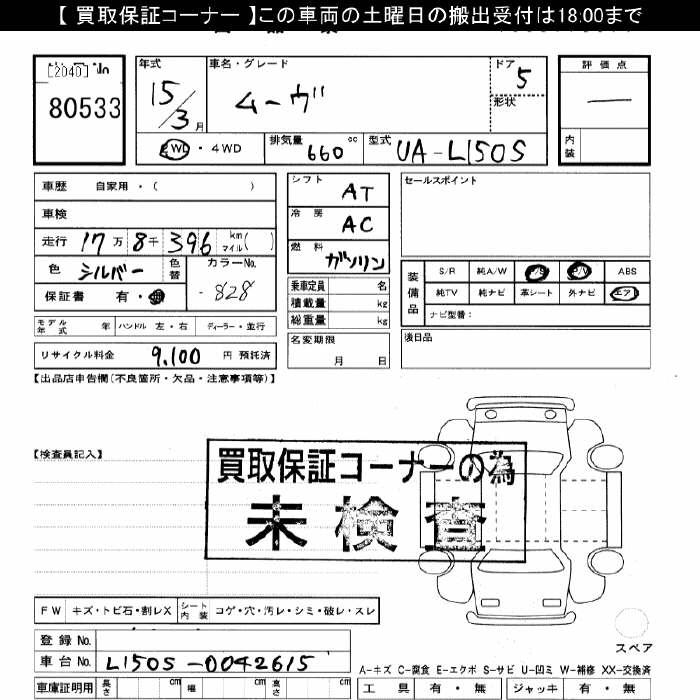 【 買取保証コーナー 】この車両の土曜日の搬出受付は18:00まで
[2040]
80533
年式
15/3月
車名・グレード
ムーヴ
ドア 5
形状
評価点
―
内装
2WD・4WD
排気量 660 cc
型式 UA-L150S
車歴 自家用・( )
車検
走行 17万 8千 396 km マイル( )
色 シルバー 色替
カラーNo. -828
保証書 有・無
モデル年式 年 ハンドル 左・右 ディーラー・並行
リサイクル料金 9,100 円 預託済
シフト AT
冷房 AC
燃料 ガソリン
乗車定員 名
積載量 kg
総重量 kg
名変期限
月 日
セールスポイント
装備品
S/R 純A/W P/S P/W ABS
純TV 純ナビ 革シート 外ナビ エアB
ナビ型番:
後日品
【出品店申告欄(不良箇所・欠品・注意事項等)】
【検査員記入】
買取保証コーナーの為
未検査
FW キズ・トビ石・割レX シート内装 コゲ・穴・汚レ・シミ・破レ・スレ
登録No.
車台No. L150S-0042615
車庫証明用 長さ cm 幅 cm 高さ cm
スペア
A-キズ C-腐食 E-エクボ S-サビ U-凹ミ W-補修 XX-交換済
工具 有・無 ジャッキ 有・無